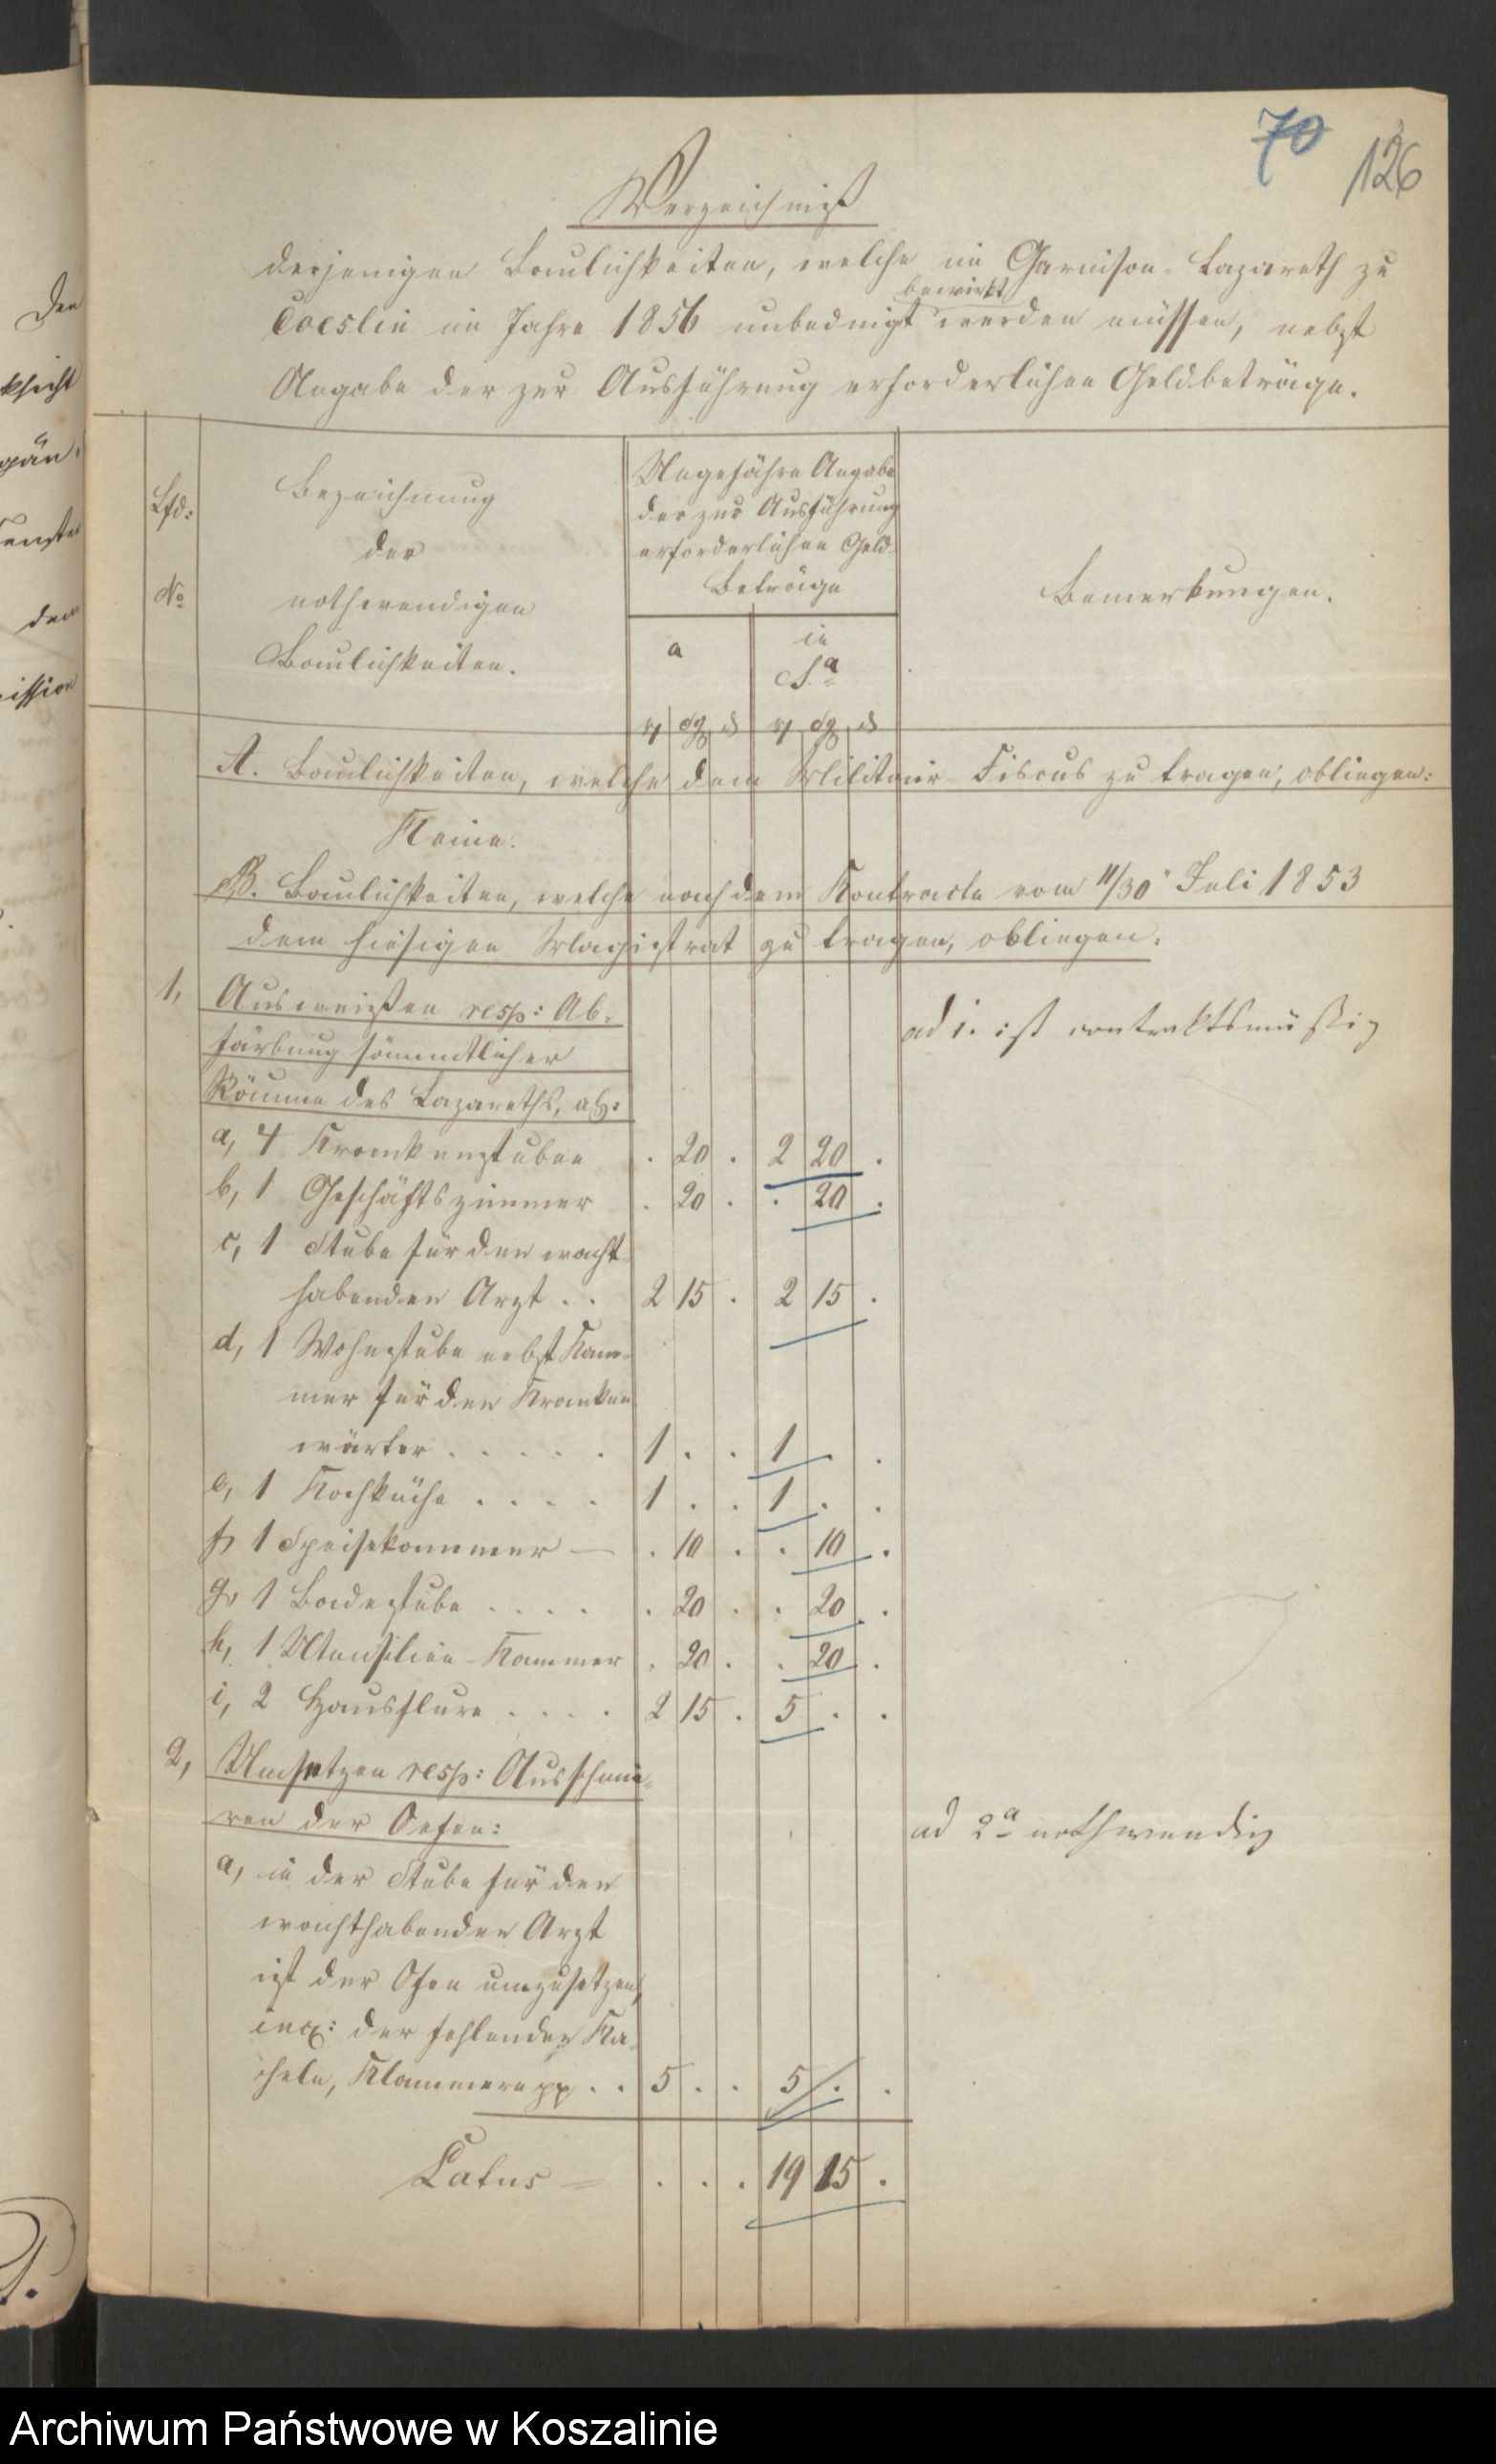 70
126
Verzeichniß
derjenigen Baulichkeiten, welche im Garnison-Lazareth zu
bewirkt
Coeslin im Jahre 1856 unbedingt werden müssen, nebst
Angabe der zur Ausführung erforderlichen Geldbeträge.
Lfd:
No
Bezeichnung
der
nothwendigen
Baulichkeiten.
Ungefähre Angabe
der zur Ausführung
erforderlichen Geld-
Beträge
a
in
Sa
Bemerkungen.
sg d sg d
A. Baulichkeiten, welche dem Militair-Fiscus zu tragen, obliegen:
Keine.
B. Baulichkeiten, welche nach dem Kontracte vom 11/30 Juli 1853
dem hiesigen Magistrat zu tragen, obliegen:
1, Ausweißen resp: Ab-
färbung sämmtlicher
Räume des Lazareths, als:
ad 1. ist contraktsmäßig
a, 4 Krankenstuben . 20 . 2 20 .
b, 1 Geschäftszimmer . 20 . . 20 .
c, 1 Stube für den wacht-
habenden Arzt . . 2 15 . 2 15 .
d, 1 Wohnstube nebst Kam-
mer für den Kranken-
wärter . . . . . 1 . . 1 . .
e, 1 Kochküche . . . . 1 . . 1 . .
f, 1 Speisekammer — . 10 . . 10 .
g, 1 Badestube . . . . . 20 . . 20 .
h, 1 Utensilien-Kammer . 20 . . 20 .
i, 2 Hausflure . . . . 2 15 . 5 . .
2, Umsetzen resp: Ausschmie-
ren der Oefen:
ad 2a nothwendig
a, in der Stube für den
wachthabenden Arzt
ist der Ofen umzusetzen,
incl: der fehlenden Ka-
cheln, Klammern pp . . 5 . . 5 . .
Latus = . . . 19 15 .
Den
ksicht
gän-
enster
den
ission
Archiwum Państwowe w Koszalinie